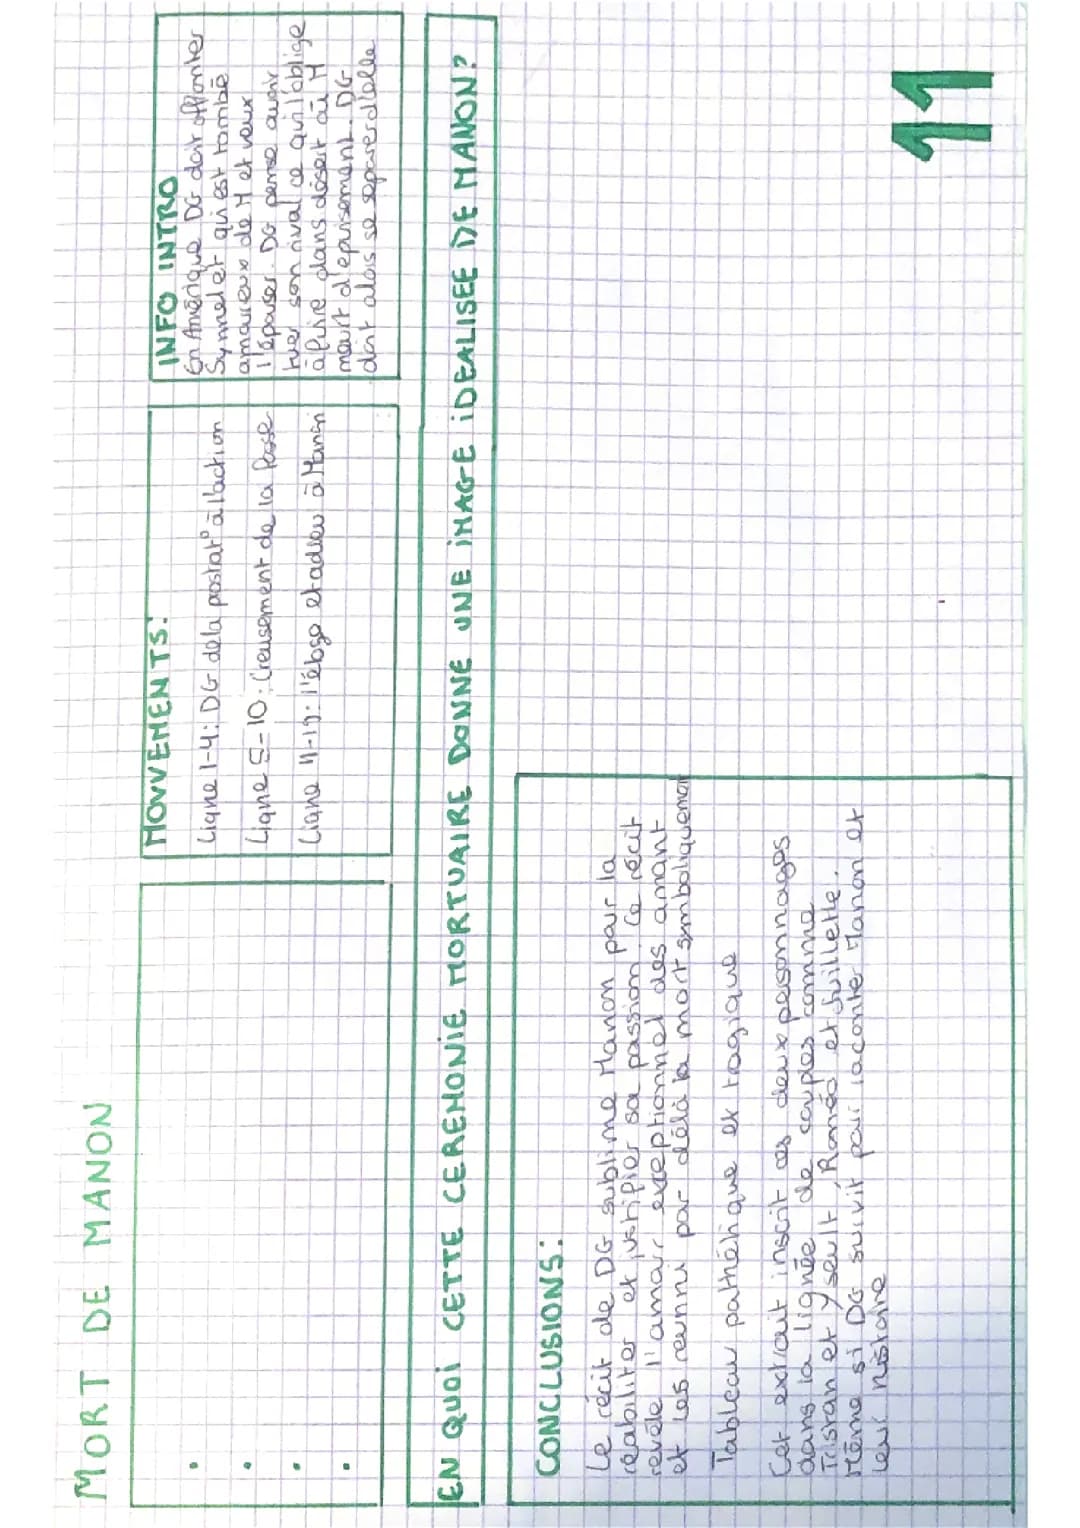 MORT DE MANON
MOUVEMENTS:
Ligne 1-4: DG de la postat° à l'action
Ligne 5-10: Creusement de la fosse
Ligne 11-19: l'éloge et adieu à Manon
INFO INTRO
En Amérique DG doit affronter
Synnelet qui est tombé
amoureux de M et veux
l'épouser. DG pense avoir
tuer son rival ce qui l'oblige
à fuire dans désert où M
meurt d'epuisement. DG
doit alors se séparer d'elle
EN QUOI CETTE CEREMONIE MORTUAIRE DONNE UNE IMAGE IDEALISEE DE MANON?
CONCLUSIONS:
Le récit de DG sublime Manon pour la
réabiliter et justifier sa passion. Ce récit
revèle l'amour exceptionnel des amant
et les reunni par délà la mort symboliquement
Tableau pathétique et tragique
Cet extrait inscrit ces deux personnages
dans la lignée de couples comme
Tristan et Yseult, Roméo et Juillette.
Même si DG suivit pour raconter Manon et
leur histoire
11